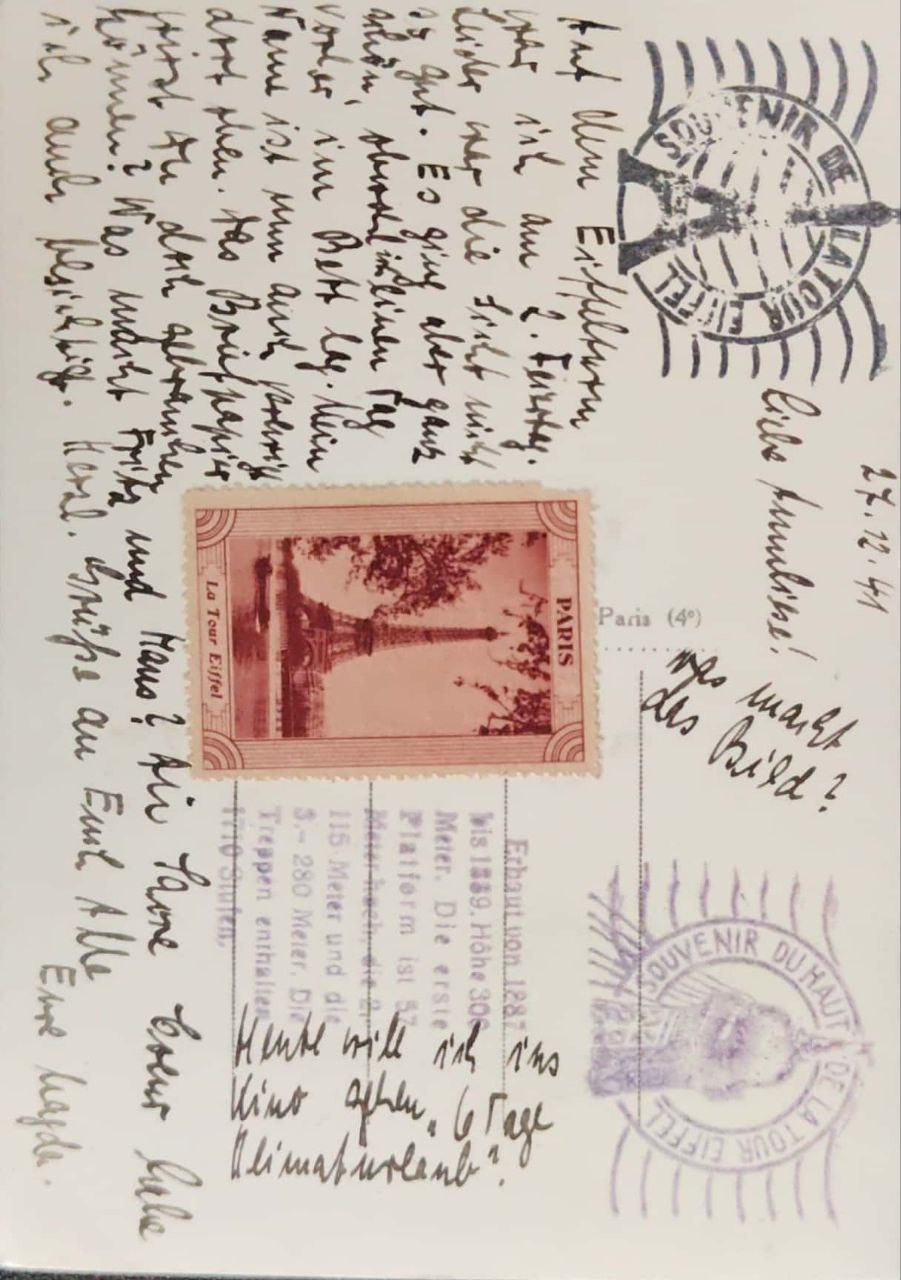 SOUVENIR DE LA TOUR EIFFEL
27.12.41
Liebe Annelise!
Was macht
das Bild?
SOUVENIR DU HAUT DE LA TOUR EIFFEL
Auf dem Eiffelturm
war ich am 2. Feiertag.
Leider war die Sicht nicht
so gut. Es ging aber ganz
schön, obwohl einen Tag
vorher im Bett lag. Mein
Name ist nun auch verewigt
dort oben. Das Briefpapier
wirst Du doch gebrauchen
können? Was macht Fritz und Hans? Die Sacre Coeur habe
ich auch besichtigt. Herzl. Grüße an Euch Alle
Eure Magda.
Paris (4e)
PARIS
La Tour Eiffel
Erbaut von 1887
bis 1889. Höhe 300
Meter. Die erste
Platform ist 57
Meter hoch, die 2.
115 Meter und die
3.- 280 Meter. Die
Treppen enthalten
1710 Stufen,
Heute will ich ins
Kino gehen „6 Tage
Heimaturlaub".